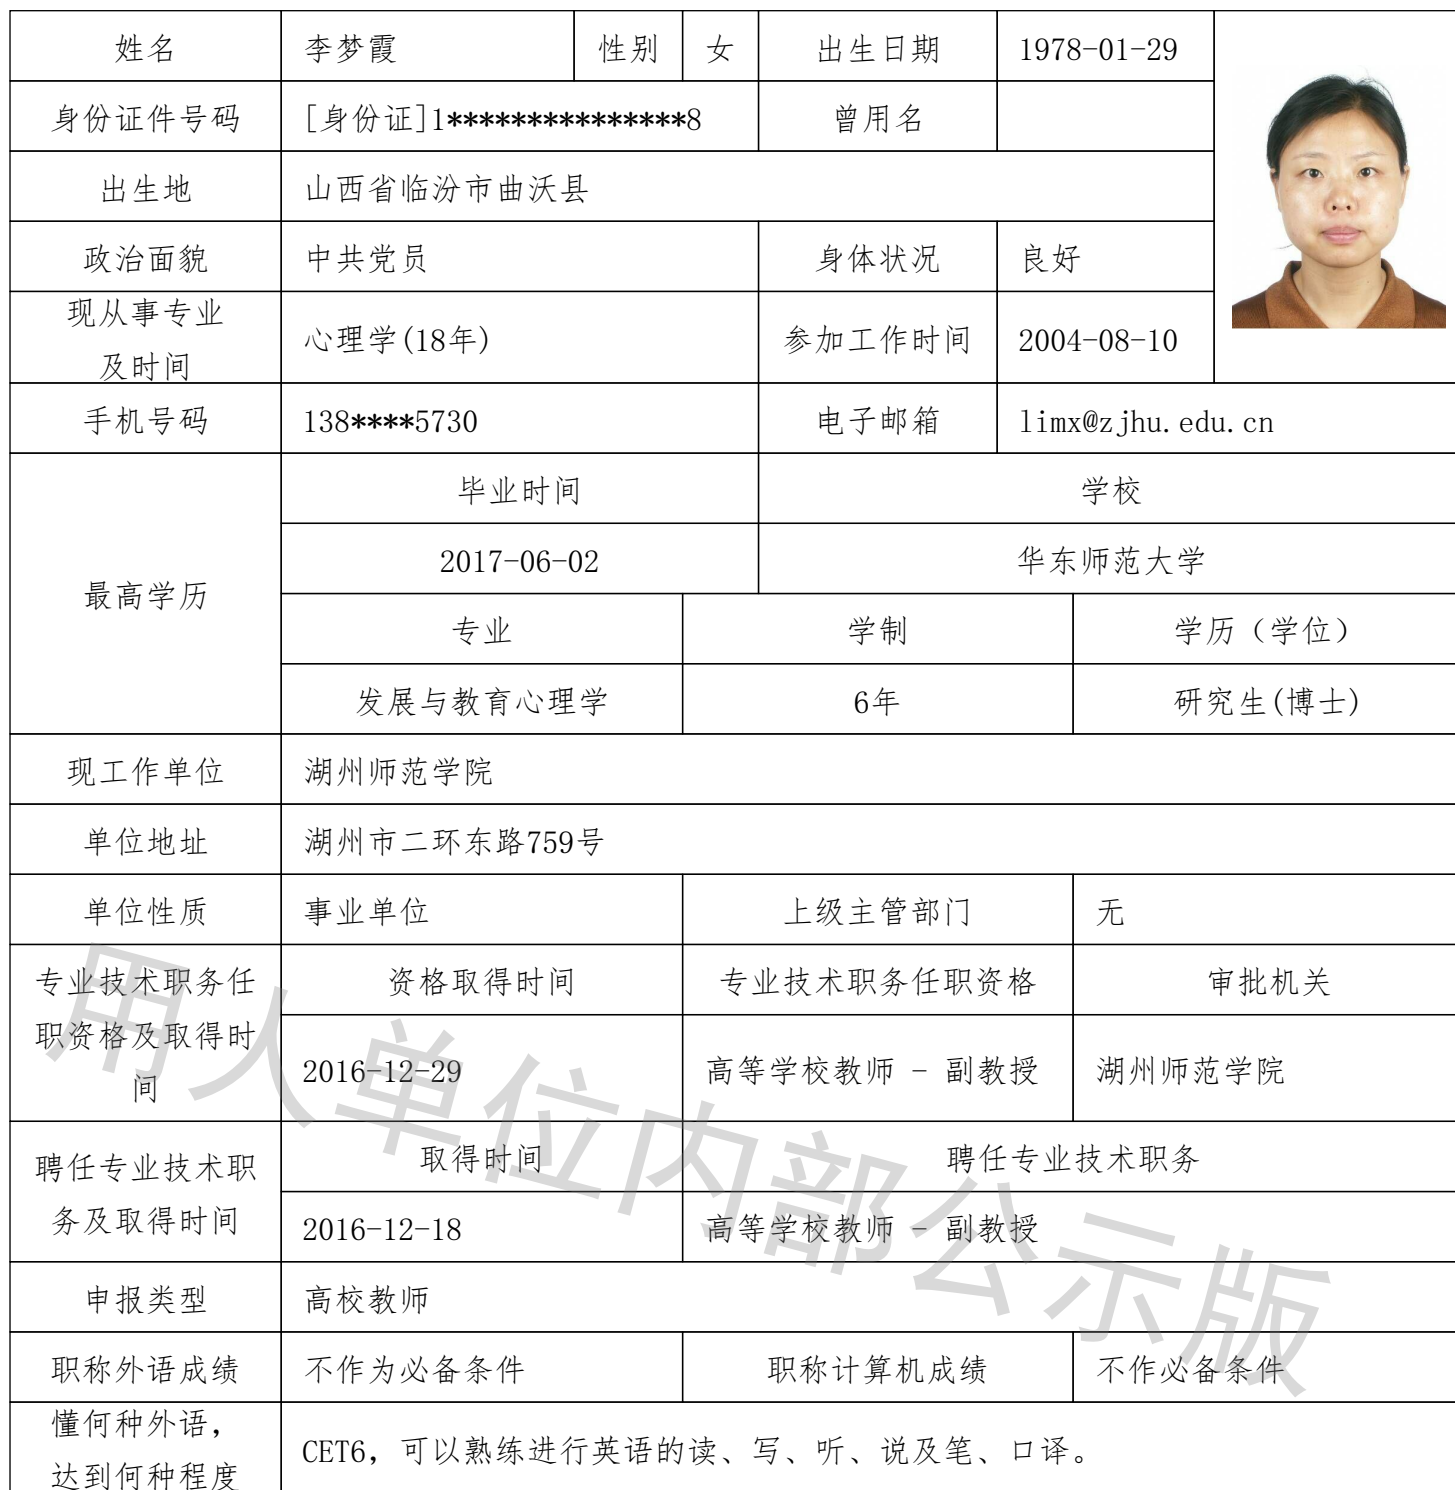 姓名 李梦霞 性别 女 出生日期 1978-01-29
身份证件号码 [身份证]1***************8 曾用名
出生地 山西省临汾市曲沃县
政治面貌 中共党员 身体状况 良好
现从事专业
及时间
心理学(18年) 参加工作时间 2004-08-10
手机号码 138****5730 电子邮箱 limx@zjhu.edu.cn
最高学历
毕业时间 学校
2017-06-02 华东师范大学
专业 学制 学历（学位）
发展与教育心理学 6年 研究生(博士)
现工作单位 湖州师范学院
单位地址 湖州市二环东路759号
单位性质 事业单位 上级主管部门 无
专业技术职务任
职资格及取得时
间
资格取得时间 专业技术职务任职资格 审批机关
2016-12-29 高等学校教师 - 副教授 湖州师范学院
聘任专业技术职
务及取得时间
取得时间 聘任专业技术职务
2016-12-18 高等学校教师 - 副教授
申报类型 高校教师
职称外语成绩 不作为必备条件 职称计算机成绩 不作必备条件
懂何种外语，
达到何种程度
CET6，可以熟练进行英语的读、写、听、说及笔、口译。
用人单位内部公示版